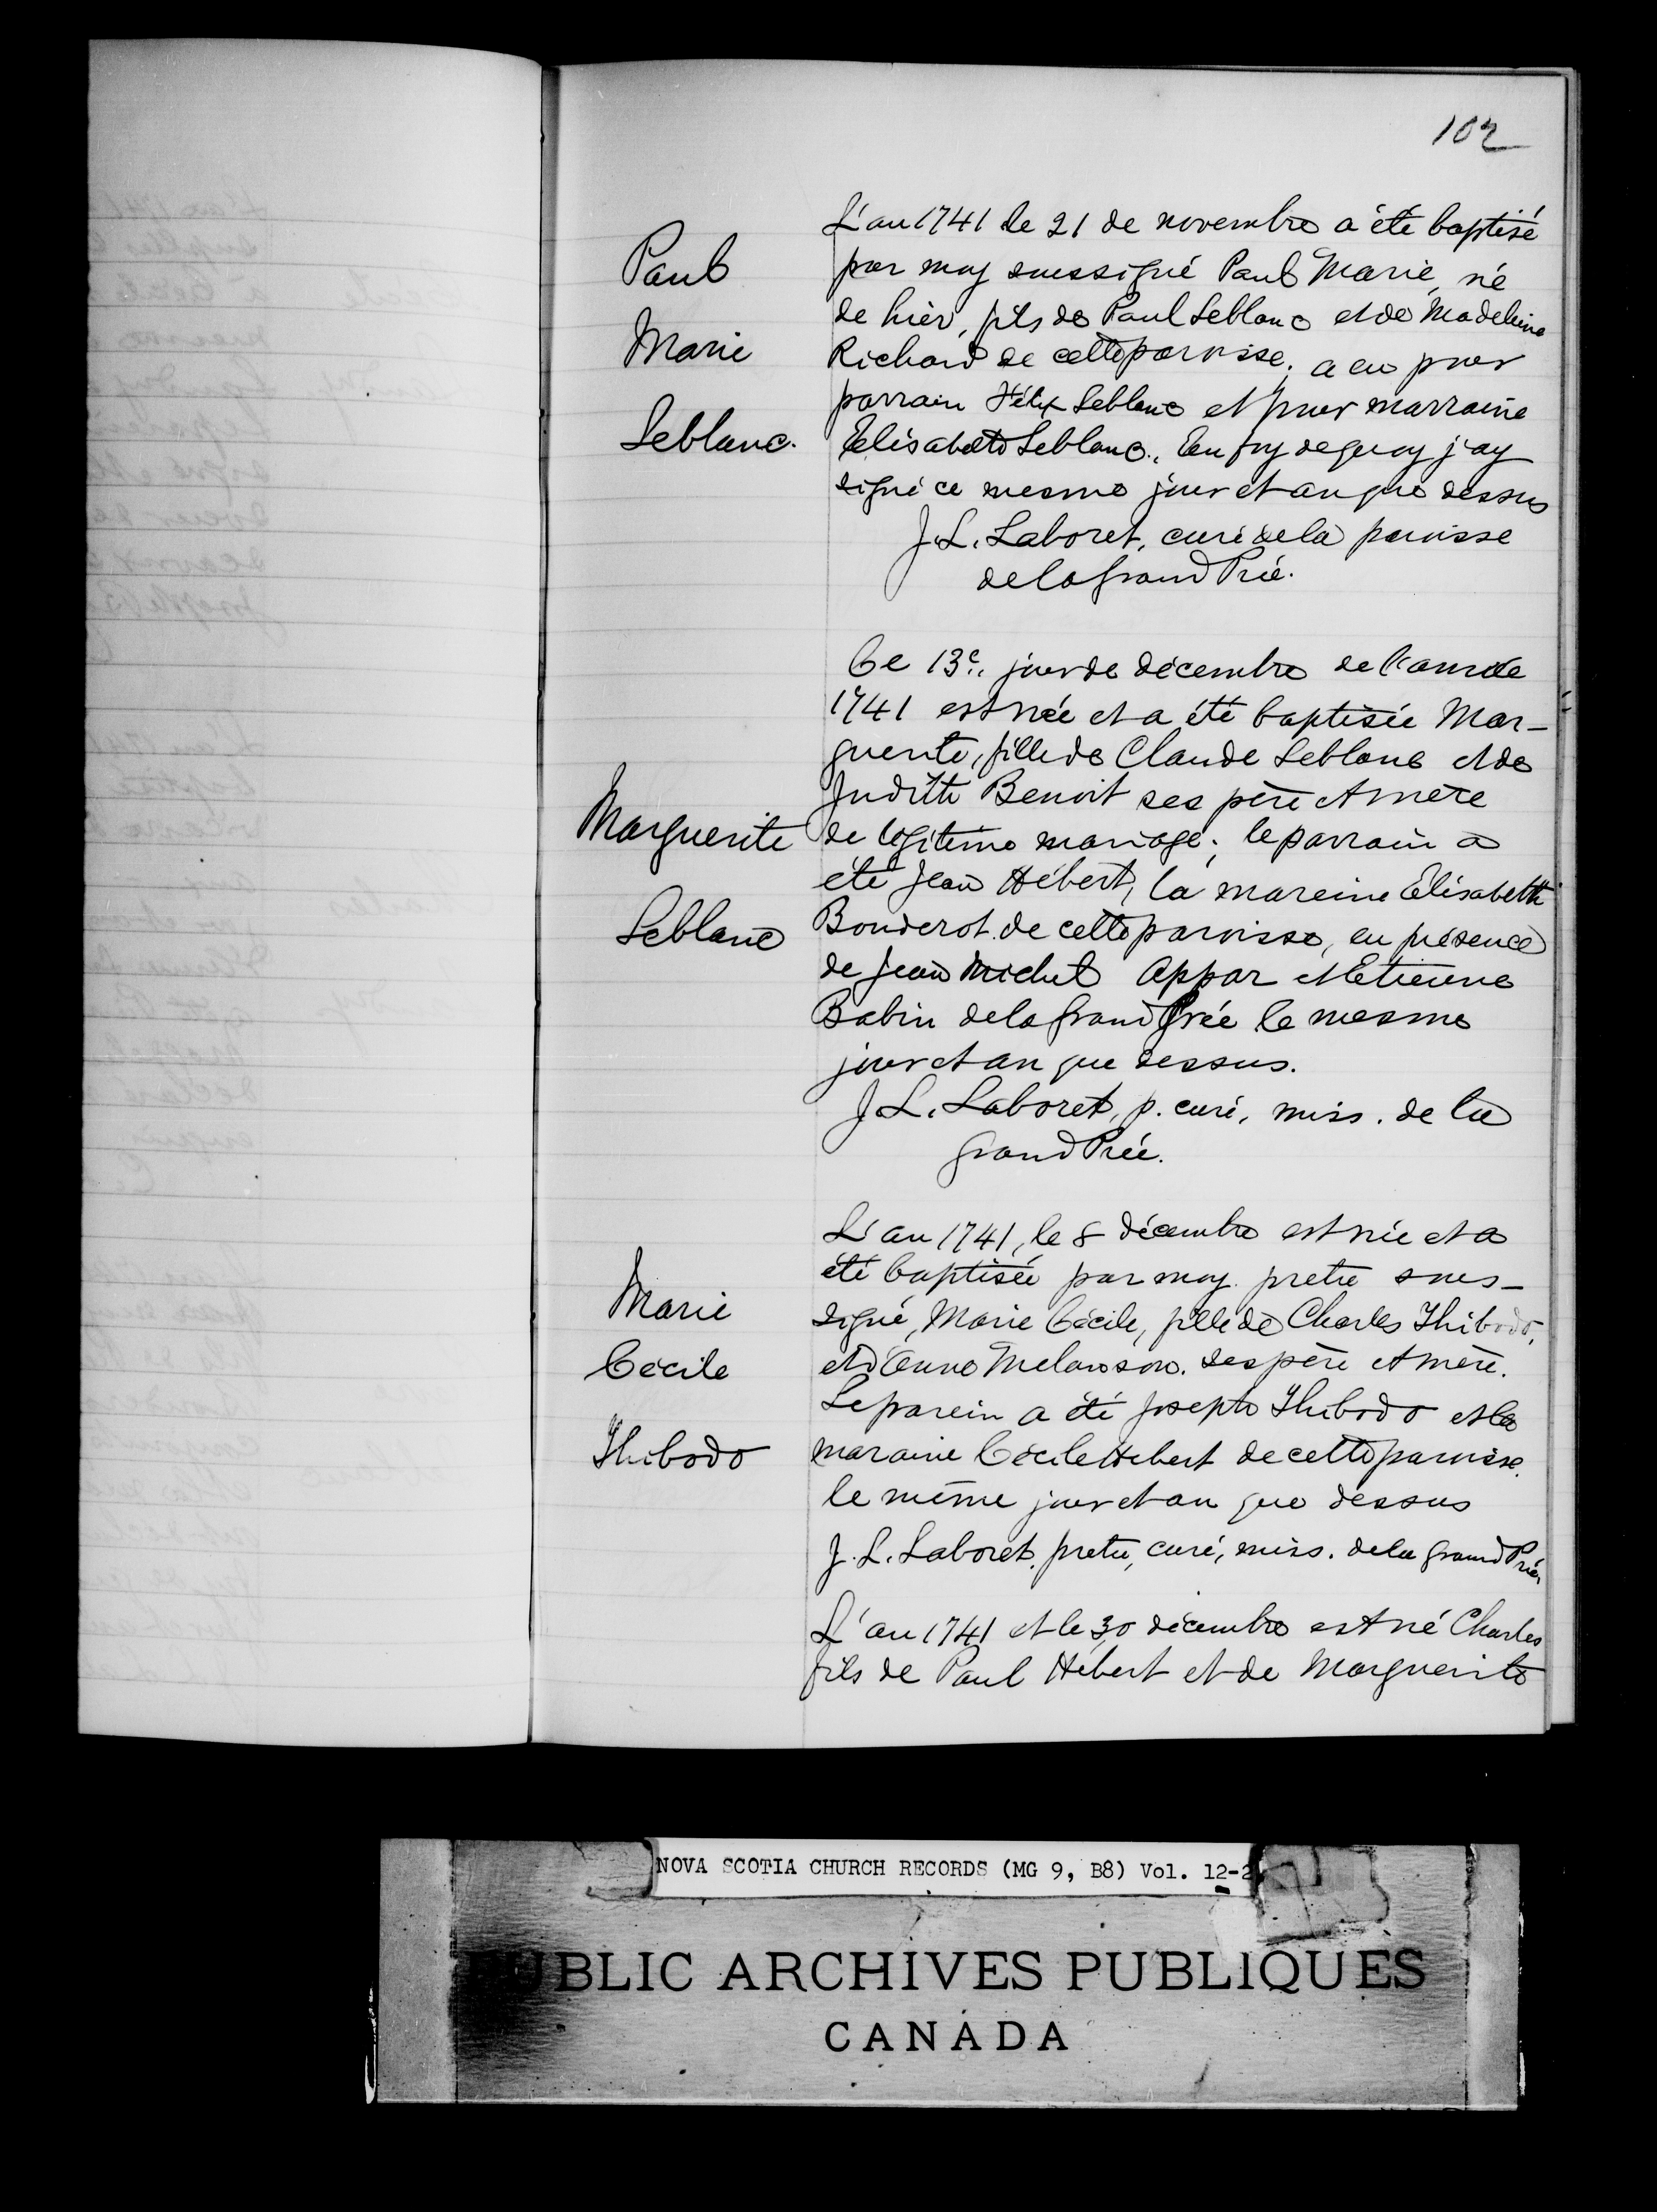 102
L'an 1741 le 21 de novembre a été baptisé
Paul
par moy soussigné Paul Marie, né
de hier, fils de Paul Leblanc et de Madeleine
Marie
Richard de cette paroisse; a eu pour
parrain Félix Leblanc et pour marraine
Leblanc.
Elisabeth Leblanc. En foy de quoy j'ay
signé ce mesme jour et an que dessus
J. L. Laboret, curé de la paroisse
de la Grand Prée.
Ce 13e. jour de décembre de l'année
1741 est née et a été baptisée Mar-
guerite, fille de Claude Leblanc et de
Judith Benoit ses père et mère
Marguerite
de légitime mariage; le parrain a
été Jean Hébert, la mareine Elisabeth
Leblanc
Bouderot de cette paroisse, en présence
de Jean Michel Appar et Etienne
Babin de la Grand Prée le mesme
jour et an que dessus.
J. L. Laboret, p. curé, miss. de la
Grand Prée.
L'an 1741, le 8 décembre est née et a
été baptisée par moy pretre sous-
Marie
signé, Marie Cécile, fille de Charles Thibodo,
Cécile
et d'Anne Melanson. ses père et mère.
Le parein a été Joseph Thibodo et la
Thibodo
maraine Cécile Hebert de cette paroisse.
le même jour et an que dessus
J. L. Laboret, pretre, curé, miss. de la Grand Prée,
L'an 1741 et le 30 décembre est né Charles
fils de Paul Hébert et de Marguerite
NOVA SCOTIA CHURCH RECORDS (MG 9, B8) Vol. 12-2
PUBLIC ARCHIVES PUBLIQUES
CANADA